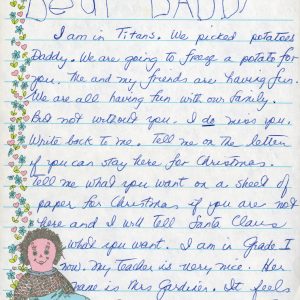 Dear DADDY
I am in Titans. We picked potatoes
Daddy. We are going to freeze a potato for
you. The and my friends are having fun.
We are all having fun with our family.
But not without you. I do miss you.
Write back to me. Tell me on the letter
if you can stay here for Christmas.
Tell me what you want on a sheet of
paper for Christmas if you are not
here and I will tell Santa Claus
what you want. I am in Grade 1
now. My teacher is very nice. Her
name is Mrs Gardner. It feels